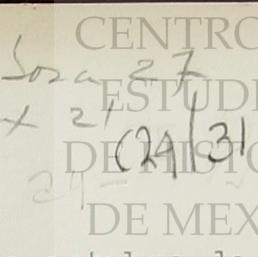 CENTRO
Sosa 27
ESTUDI
x 21
(24) 31
DE HISTO
24
DE MEX